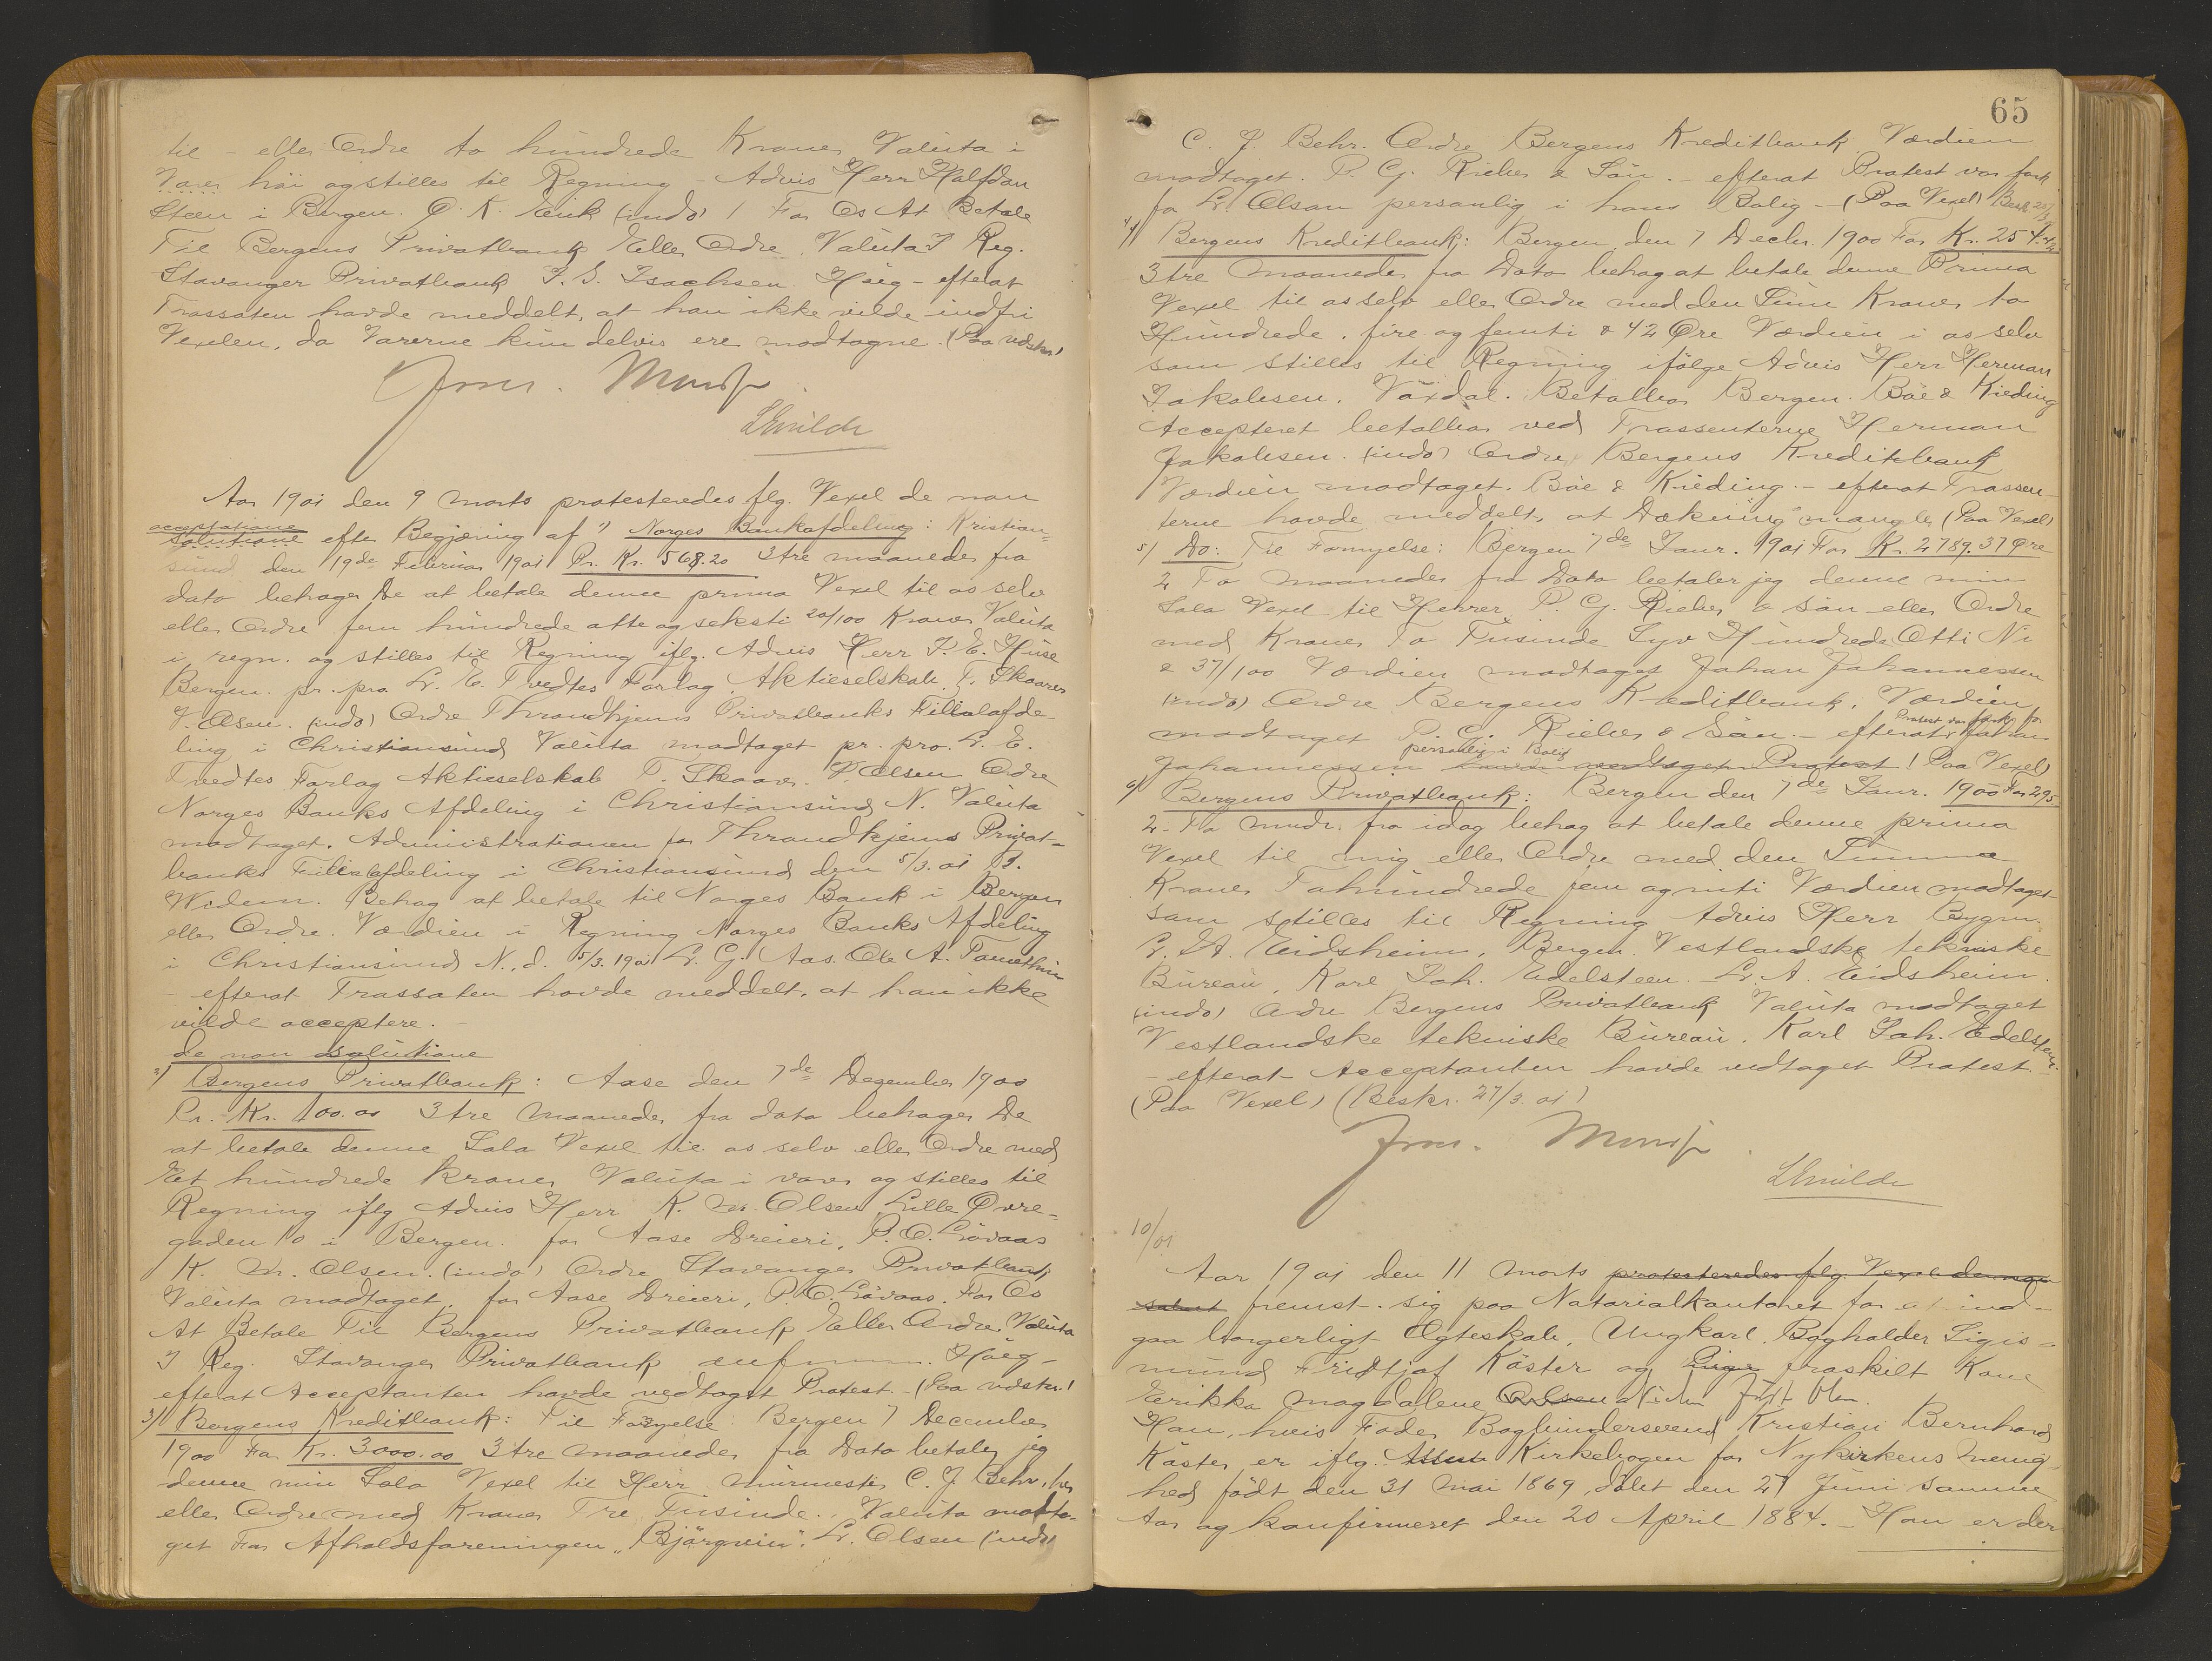 til - eller Ordre to hundrede Kroner Valuta i
Varer høi og stilles til Regning - Advis Herr Halfdan
Steen i Bergen. O. K. Eeik (indo) / For Os At Betale
Til Bergens Privatbank Eller Ordre Valuta I Reg.
Stavanger Privatbank I. G. Isachsen Høeg - efterat
Trassaten havde meddelt, at han ikke vilde indfri
Vexelen, da Varerne kun delvis ere modtagne. (Paa udstr)
Aar 1901 den 9 Marts protesteredes flg. Vexel de non
acceptatione
solutione efter Begjæring af 1) Norges Bankafdeling: Kristian-
sund den 19de Februar 1901 Pr. Kr. 568.20 3 tre maaneder fra
dato behager De at betale denne prima Vexel til os selv
eller Ordre fem hundrede otte og seksti 20/100 Kroner Valuta
i regn. og stilles til Regning iflg. Advis Herr P. E. Huse
Bergen. pr. pro. L. E. Tvedtes Forlag. Aktieselskab. T. Skaarer
J. Olsen. (indo) Ordre Throndhjems Privatbanks Filialafde-
ling i Christiansund Valuta modtaget pr. pro. L. E.
Tvedtes Forlag Aktieselskab T. Skaar. J. Olsen Ordre
Norges Banks Afdeling i Christiansund N. Valuta
modtaget. Administrationen for Throndhjems Privat-
banks Filialafdeling i Christiansund den 5/3. 01 B.
Widem. Behag at betale til Norges Bank i Bergen
eller Ordre. Værdien i Regning Norges Banks Afdeling
i Christiansund N., d. 5/3. 1901 L. G. Aas. Ole A.
- efterat Trassaten havde meddelt, at han ikke
vilde acceptere. -
de non solutione
2) Bergens Privatbank: Aase den 7de Dezember 1900
Pr. Kr. 100.00 3 tre Maaneder fra dato behager De
at betale denne Sola Vexel til os selv eller Ordre med
Et hundrede Kroner Valuta i varer og stilles til
Regning iflg Advis Herr K. M. Olsen, Lille Øvre-
gaden 10 i Bergen. for Aase Dreieri, P. O. Løvaas
K. M. Olsen. (indo) Ordre Stavanger Privatbank
Valuta modtaget. for Aase Dreieri, P. O. Løvaas. For Os
At Betale Til Bergens Privatbank Eller Ordre. Valuta
I Reg. Stavanger Privatbank Høeg -
efterat Acceptanten havde vedtaget Protest. - (Paa udstr.)
3) Bergens Kreditbank: Til Fornyelse: Bergen 7 December
1900 For Kr. 3000.00 3 tre maaneder fra Dato betaler jeg
denne min Sola Vexel til Herr Murmester C. J. Behr, her
eller Ordre med Kroner Tre Tusinde. Valuta modta-
get For Afholdsforeningen "Bjørgvin". L. Olsen (indo)
65
C. J. Behr. Ordre Bergens Kreditbank Værdien
modtaget. P. G. Rieber & Søn. - efterat Protest var fork
for L. Olsen personlig i hans Bolig - (Paa Vexel)
4) Bergens Kreditbank: Bergen den 7 Decbr. 1900 For Kr. 254.42
3 tre Maaneder fra Dato behag at betale denne Prima
Vexel til os selv eller Ordre med den Sum Kroner to
Hundrede, fire og femti & 42 Øre Værdien i os selv
som stilles til Regning ifølge Advis Herr Herman
Jakobsen. Vaxdal. Betalbar Bergen. Bøe & Kieding
Accepteret betalbar ved Trassenterne Herman
Jakobsen. (indo) Ordre Bergens Kreditbank
Værdien modtaget. Bøe & Kieding. - efterat Trassen-
terne havde meddelt, at Dækning mangler (Paa Vexel)
5) Do: Til Fornyelse: Bergen 7de Janr. 1901 For Kr. 2789.37 Øre
2 To Maaneder fra Dato betaler jeg denne min
Sola Vexel til Herrer P. G. Rieber & Søn eller Ordre
med Kroner To Tusinde Syv Hundrede Otti Ni
& 37/100 Værdien modtaget Johan Johannessen
(indo) Ordre Bergens Kreditbank. Værdien
modtaget P. G. Rieber & Søn. - efterat Protest var fork. for Johan
Johannessen personlig i Bolig (Paa Vexel)
6) Bergens Privatbank: Bergen den 7de Janr. 1900 For 295-
2- To mndr. fra idag behag at betale denne prima
Vexel til mig eller Ordre med den Summa
Kroner Tohundrede fem og niti Værdien modtaget
som stilles til Regning Advis Herr Bygm.
L. A. Eidsheim, Bergen. Vestlandske tekniske
Bureau, Karl Joh. Edelsteen. - L. A. Eidsheim.
(indo) Ordre Bergens Privatbank Valuta modtaget
Vestlandske tekniske Bureau. Karl Joh. Edelsteen
- efterat Acceptanten havde vedtaget Protest. -
(Paa Vexel) (Beskr. 27/3. 01)
10/01
Aar 1901 den 11 Marts protesteredes flg. Vexel de non
solut fremst. sig paa Notarialkontoret for at ind-
gaa borgerligt Ægteskab, Ungkarl, Bogholder Sigis-
mund Fridtjof Køster og Pige fraskilt Kone
Erikka Magdalene født
Han, hvis Fader Bogbindersvend Kristian Bernhard
Køster, er iflg. Kirkebogen for Nykirkens Menig-
hed født den 31 Mai 1869, døbt den 27 Juni samme
Aar og konfirmeret den 20 April 1884. - Han er der